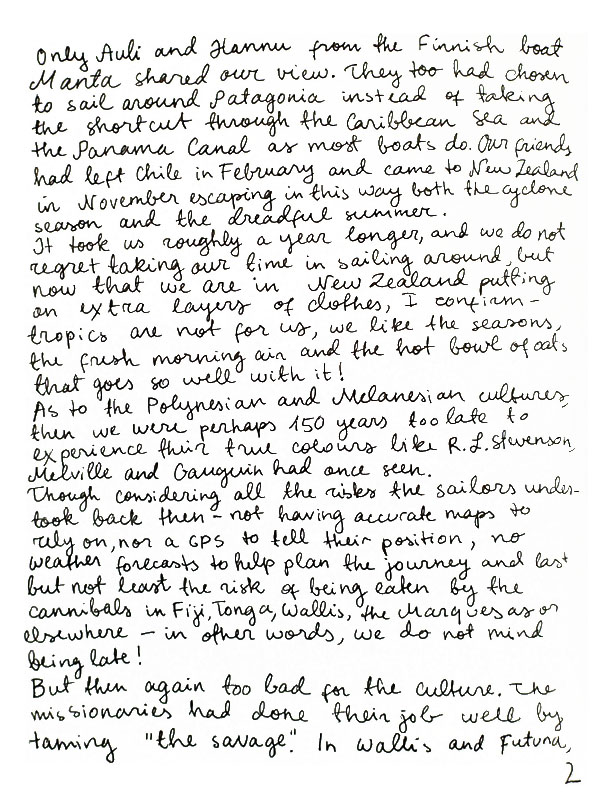 Only Auli and Hannu from the Finnish boat
Manta shared our view. They too had chosen
to sail around Patagonia instead of taking
the shortcut through the Caribbean Sea and
the Panama Canal as most boats do. Our friends
had left Chile in February and came to New Zealand
in November escaping in this way both the cyclone
season and the dreadful summer.
It took us roughly a year longer, and we do not
regret taking our time in sailing around, but
now that we are in New Zealand putting
on extra layers of clothes, I confirm -
tropics are not for us, we like the seasons,
the fresh morning air and the hot bowl of oats
that goes so well with it!
As to the Polynesian and Melanesian cultures,
then we were perhaps 150 years too late to
experience their true colours like R.L. Stevenson,
Melville and Gauguin had once seen.
Though considering all the risks the sailors under-
took back then - not having accurate maps to
rely on, nor a GPS to tell their position, no
weather forecasts to help plan the journey and last
but not least the risk of being eaten by the
cannibals in Fiji, Tonga, Wallis, the Marquesas or
elsewhere - in other words, we do not mind
being late!
But then again too bad for the culture. The
missionaries had done their job well by
taming "the savage". In Wallis and Futuna,
2